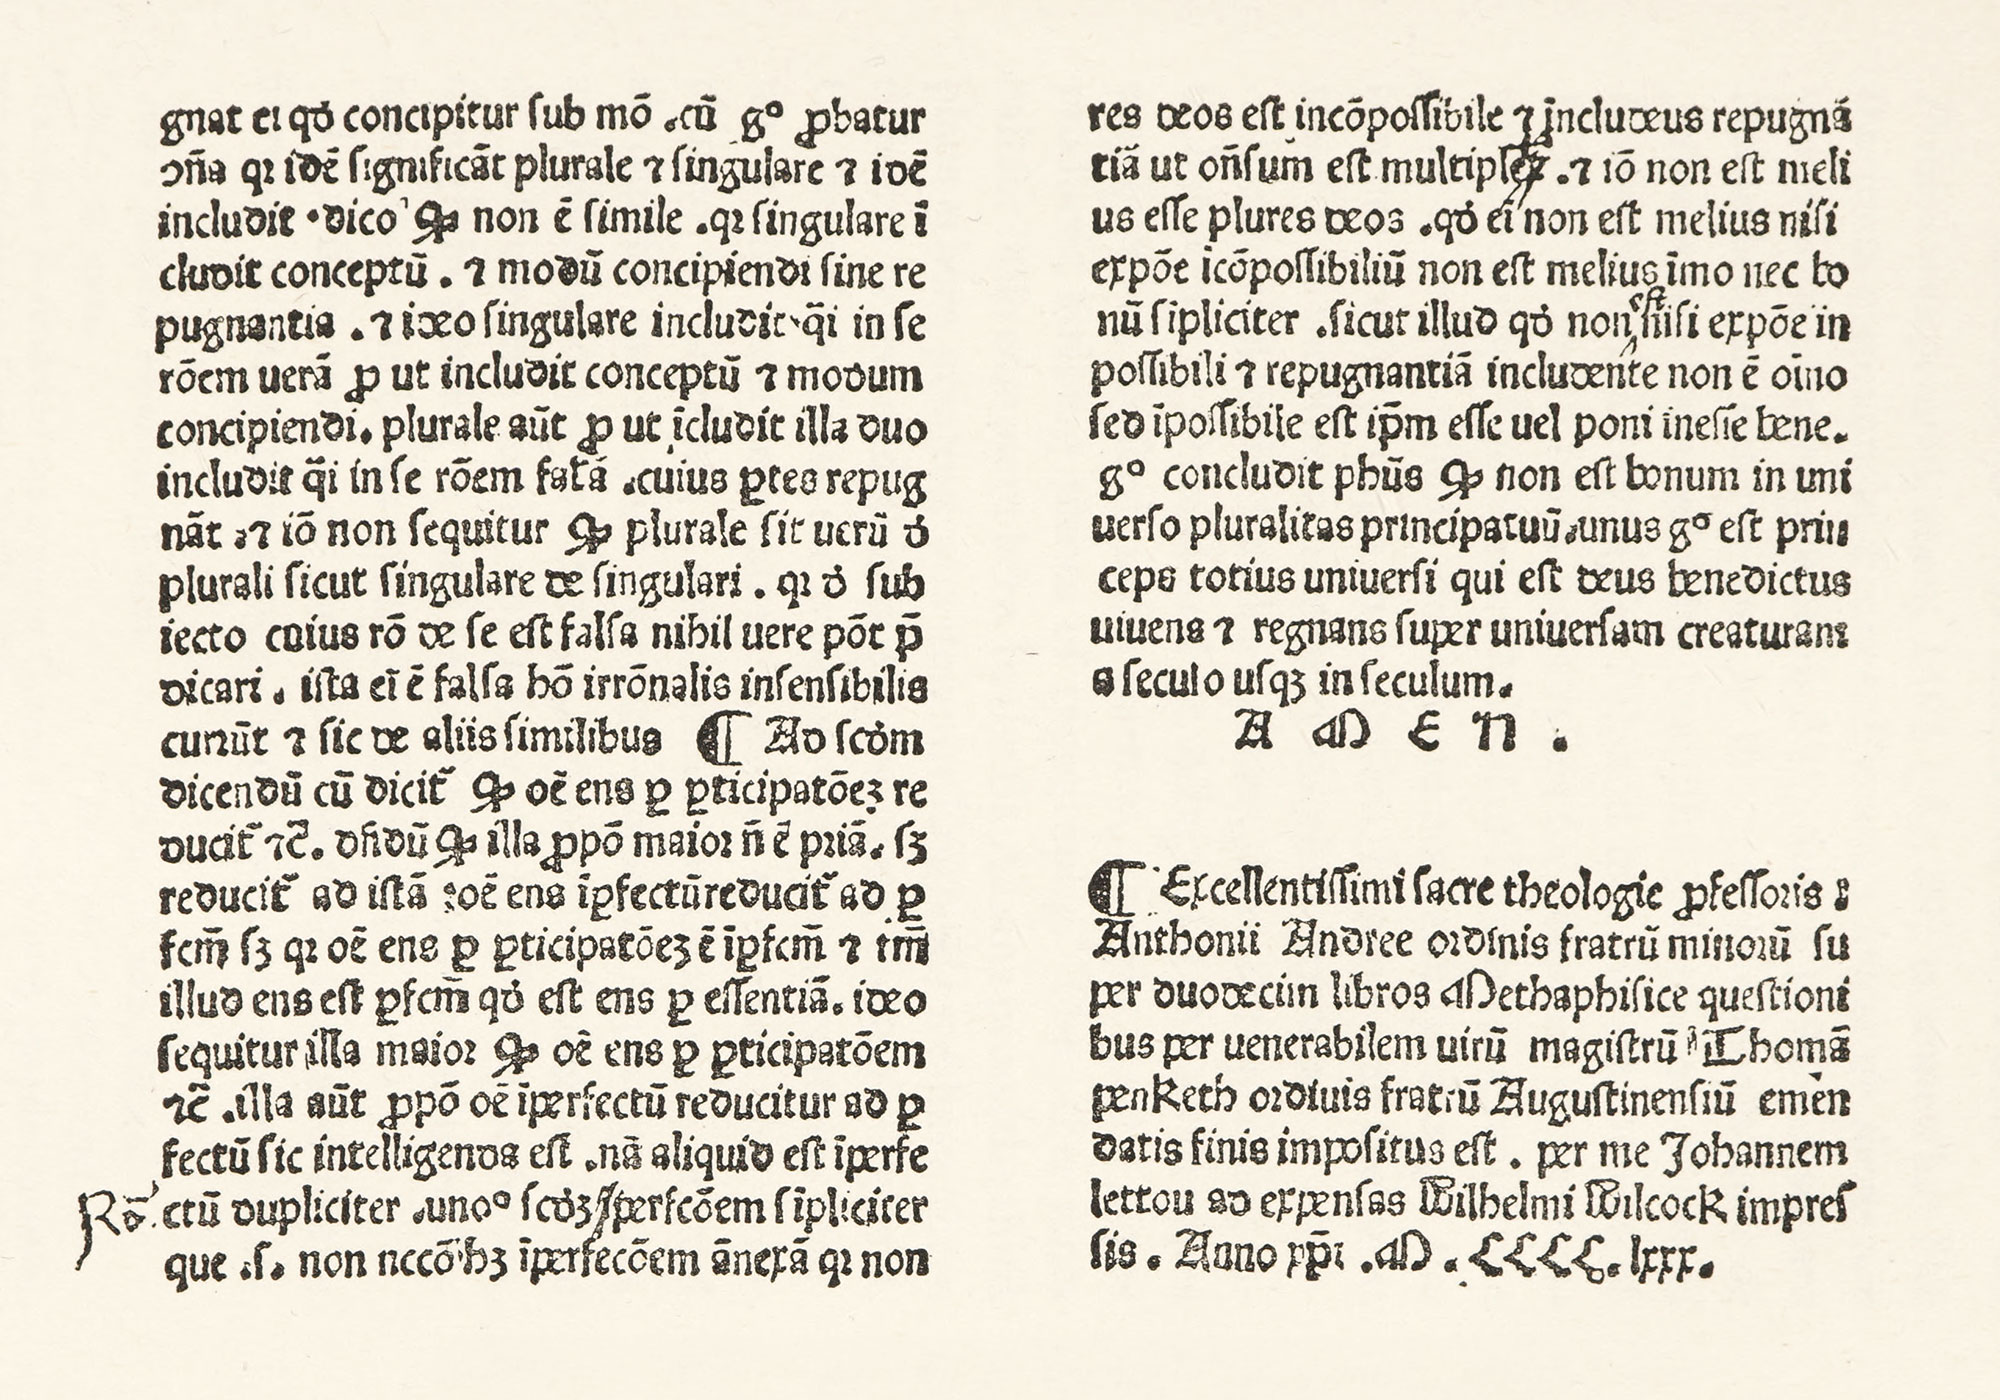 gnat ei qđ concipitur ſub mō .cū gº ꝓbatur
ɔña qꝛ idē ſignificāt plurale ⁊ ſingulare ⁊ idē
includit .dico ꝙ non ē ſimile .qꝛ ſingulare ī
cludit conceptū . ⁊ modū concipiendi ſine re
pugnantia . ⁊ ideo ſingulare includit q̄ſi in ſe
rōem uerā ꝓ ut includit conceptū ⁊ modum
concipiendi. plurale aūt ꝓ ut īcludit illa duo
includit q̄ſi in ſe rōem falſā .cuius ꝑtes repug
nāt .⁊ iō non ſequitur ꝙ plurale ſit uerū đ
plurali ſicut ſingulare de ſingulari . qꝛ đ ſub
iecto cuius rō de ſe eſt falſa nihil uere pōt p̄
dicari . iſta eī ē falſa hō irrōnalis inſenſibilis
currūt ⁊ ſic de aliis ſimilibus ¶ Ad ſcđm
dicendū cū dicit̄ ꝙ oē ens ꝑ ꝑticipatōeꝫ re
ducit̄ ⁊c̄. dn̄dū ꝙ illa ꝓpō maioꝛ n̄ ē pꝛiā. ſꝫ
reducit̄ ad iſtā :oē ens īꝑfectū reducit̄ ad ꝑ
fcm̄ ſꝫ qꝛ oē ens ꝑ ꝑticipatōeꝫ ē īꝑfcm̄ ⁊ tm̄
illud ens eſt ꝑfcm̄ qđ eſt ens ꝑ eſſentiā. ideo
ſequitur illa maioꝛ ꝙ oē ens ꝑ ꝑticipatōem
⁊c̄ .illa aūt ꝓpō oē īperfectū reducitur ad ꝑ
fectū ſic intelligenda eſt .nā aliquid eſt īperfe
ctū dupliciter .unoº ſcđꝫ īperfcōem ſīpliciter
que .ſ. non nccō hꝫ īperfecōem ānexā qꝛ non
res deos eſt incōpoſſibile ⁊ includens repugnā
tiā ut oñſum eſt multiplr .⁊ iō non eſt meli
us eſſe plures deos .qđ eī non eſt melius niſi
expōe īcōpoſſibiliū non eſt melius īmo nec bo
nū ſīpliciter .ſicut illud qđ non eſt niſi expōe in
poſſibili ⁊ repugnantiā includente non ē oīno
ſed īpoſſibile eſt ip̄m eſſe uel poni ineſſe bene.
gº concludit phūs ꝙ non eſt bonum in uni
uerſo pluralitas principatuū.unus gº eſt prin
ceps totius uniuerſi qui eſt deus benedictus
uiuens ⁊ regnans ſuper uniuerſam creaturam
a ſeculo uſqꝫ in ſeculum.
A M E N .
¶ Excellentiſſimi ſacre theologie ꝓfeſſoꝛis :
Anthonii Andree oꝛdinis fratrū minoꝛū ſu
per duodecim libros Methaphiſice queſtioni
bus per uenerabilem uirū magiſtrū Thomā
penketh oꝛdiuis fratrū Auguſtinenſiū emen
datis finis impoſitus eſt . per me Johannem
lettou ad expenſas Wilhelmi Wilcock impreſ
ſis . Anno xp̄i .M . CCCC. lxxx.